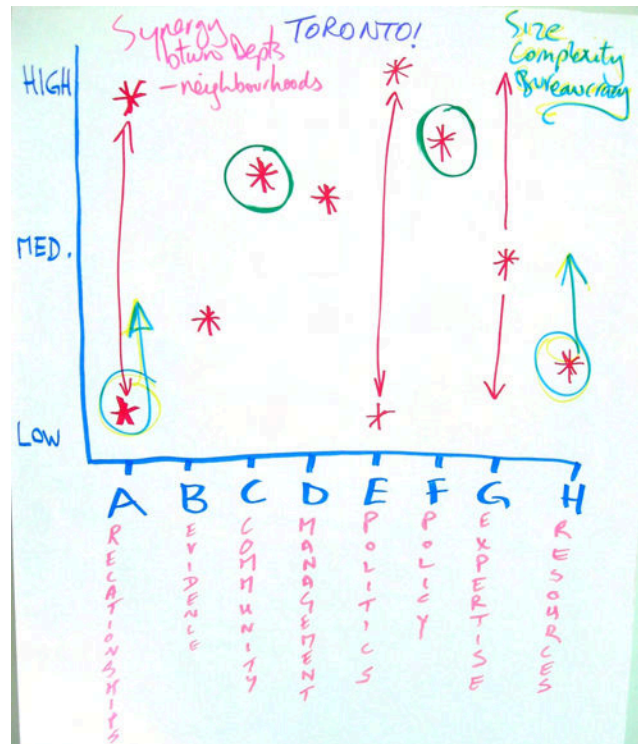 Synergy
btwn Depts
— neighbourhoods
TORONTO!
Size
Complexity
Bureaucracy
HIGH
MED.
LOW
A B C D E F G H
RELATIONSHIPS
EVIDENCE
COMMUNITY
MANAGEMENT
POLITICS
POLICY
EXPERTISE
RESOURCES